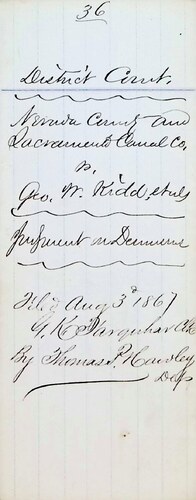 36
District Court.
Nevada County and
Sacramento Canal Co,
vs,
Geo. W. Kidd, et als
Judgment on Demurrer
Filed Aug 3d 1867
G. K. Farquhar Clk
By Thomas P. Hawley
Dep